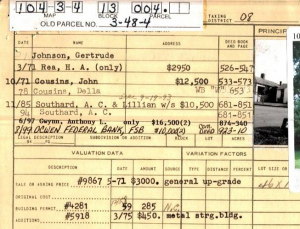 104-3-4 13 004.
MAP BLOCK PARCEL
OLD PARCEL NO. 3-48-4
TAKING DISTRICT 08
DATE ADDRESS DEED BOOK AND PAGE
Johnson, Gertrude
3/71 Rea, H. A. (only) $2950 526-547
10/71 Cousins, John $12,500 533-573
78 Cousins, Della WB 653
11/85 Southard, A. C. & Lillian w/s $10,500 681-851
94 Southard, A. C. 681-851
6/97 Gwynn, Anthony L. only $16,500(2) 876-340
2/99 OCWEN FEDERAL BANK, FSB $10,000(2) 923-10
LEGAL DESCRIPTION
VALUATION DATA VARIATION FACTORS
DATE AMOUNT SOURCE TYPE DESCRIPTION
SALE OR ASKING PRICE #9867 5-71 $3000. general up-grade
ORIGINAL COST
BUILDING PERMIT #4281 59 285
ADDITIONS #5918 3/75 $450. metal strg.bldg.
PRINCIP